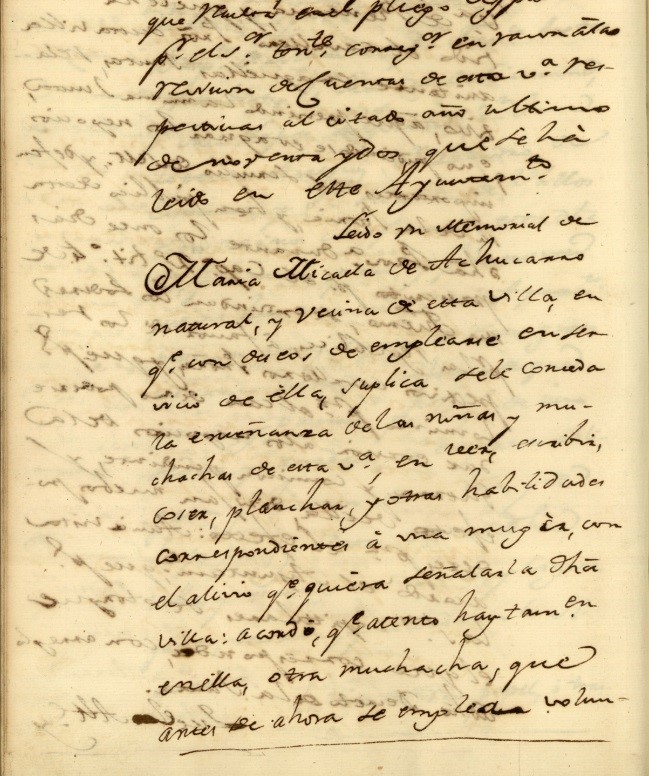 que resulta en el pliego
p.r el S.or ten.te correg.or en razon a las
revision de Cuentas de esta v.a res-
pectivas al citado año ultimo
de noventa y dos que se há
leido en este Ayuntam.to
Leido un Memorial de
Maria Micaela de Achucarro
natural, y vecina de esta villa, en
q.e con deseos de emplearse en ser
vicio de ella, suplica se le conceda
la enseñanza de las niñas y mu-
chachas de esta v.a, en leer, escribir,
coser, planchar, y otras habilidades
correspondientes á una mugèr, con
el alivio q.e quiera señalarla dhã
villa: acordó, q.e atento hay tam.en
en ella, otra muchacha, que
antes de ahora se emplea volun-